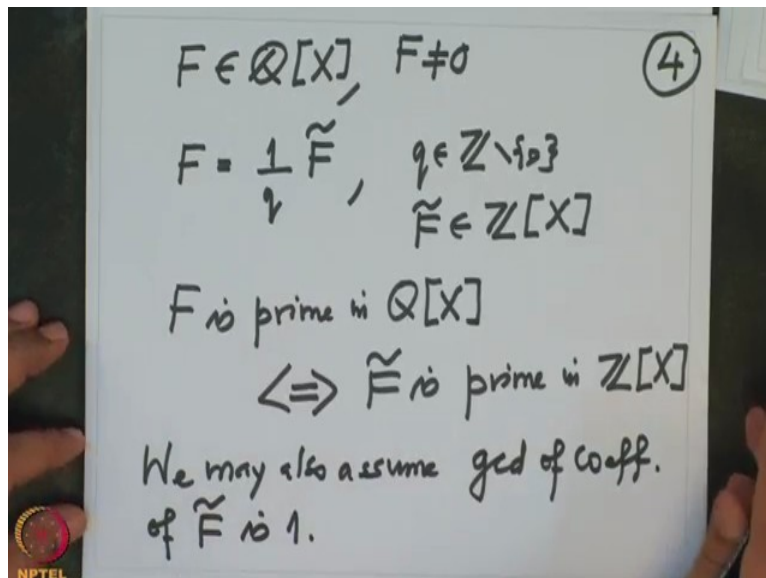 F ∈ ℚ[X], F ≠ 0
④
F = 1/q F̃, q ∈ ℤ \ {0}
F̃ ∈ ℤ[X]
F is prime in ℚ[X]
<=> F̃ is prime in ℤ[X]
We may also assume gcd of coeff.
of F̃ is 1.
NPTEL